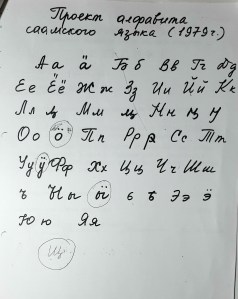 Проект алфавита
саамского языка (1979г.)
Аа ӓ Бб Вв Гг Дд
Ее Ёё Жж Зз Ии Йй Кк
Лл Мм Нн Ӊӊ
Оо ӧ Пп Рр Сс Тт
Уу ӱ Фф Хх Цц Чч Шш
ъ Ыы ӹ ь ҍ Ээ ӭ
Юю Яя
Щ